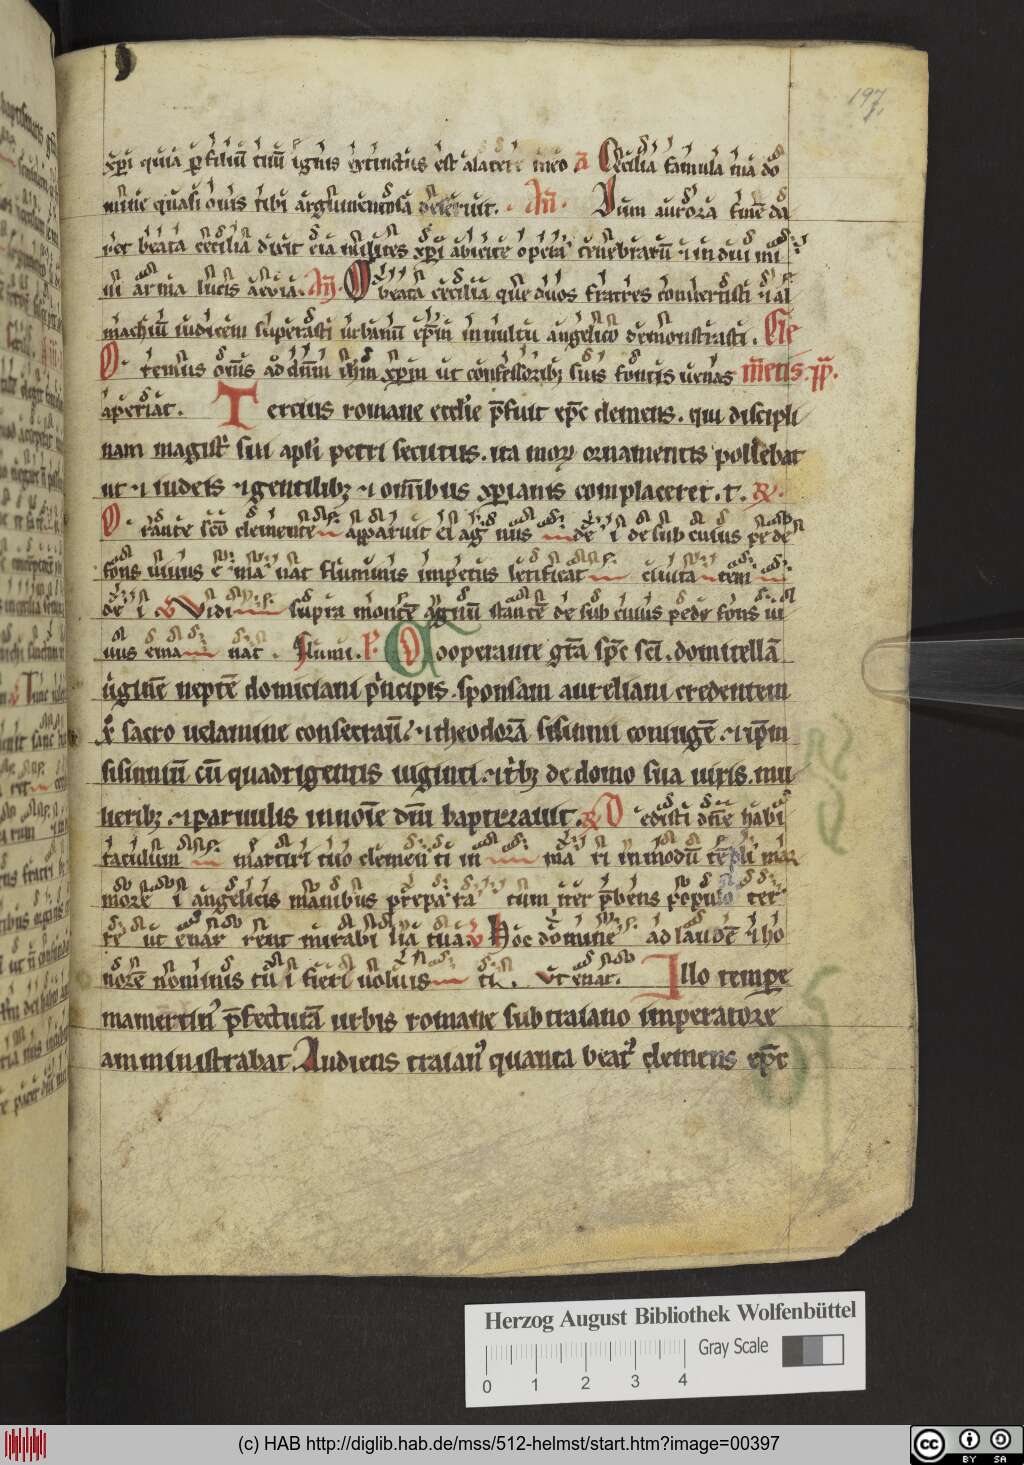 197
xp̄i quia p filiū tuū ignis extinctus est a latere meo a Cecilia famula tua do
mine quasi ouis tibi argumentosa deseruit. An̄. Dum aurora finē da
ret beata cecilia dixit eia milites xp̄i abicite opera tenebrarū ⁊ induimi
ni arma lucis aeuia. An̄. O beata cecilia que duos fratres conuertisti ⁊ al
machiū iudicem superasti urbanū ep̄m in uultu angelico demonstrasti. Cle
O remus om̄s ad dn̄m ihm xp̄m ut confessoribꝫ suis fontis uenas m̄tis. pp̄.
aperiat. Tercius romane eccl'ie p̄fuit ep̄c clemens. qui discipli
nam magist̄ sui apl'i petri secutus. ita moꝝ ornamentis pollebat
ut ⁊ iudeis ⁊ gentilibꝫ ⁊ om̄ibus xp̄ianis complaceret. t. ꝶ.
O rante sc̄o clemente apparuit ei ag nus de i de sub cuius pede
fons uiuus e ma nat fluminis impetus letificat ciuita tem
de i ℣ Vidi supra montē agnū stantē de sub cuius pede fons ui
uus ema nat. Flumi. P. Cooperante gr̄a sp̄c sc̄i. domitellā
uginē neptē domiciani pncipis. sponsam aureliani credentem
x̄ sacro uelamine consecrauit. ⁊ theodorā sisinnii coniugē. ⁊ ip̄m
sisinniū cū quadrigentis uiginti. ⁊ tribꝫ de domo sua uiris. mu
lieribꝫ. ⁊ paruulis in no͞ie dn̄i baptizauit. ꝶ D edisti dn̄e habi
taculum martiri tuo clemen ti in ma ri in modū tēpli mar
more i angelicis manibus prepa ra tum iter p̄bens populo ter
re ut enar rent mirabi lia tua ℣ Hoc domine ad laudē ⁊ ho
norē nominis tu i fieri uoluis ti. Vt enar. Illo tempe
mamertin' p̄fecturā urbis romane sub traiano imperatore
amministrabat. Audiens traian' quanta beat' clemens ep̄c
Herzog August Bibliothek Wolfenbüttel
Gray Scale
0 1 2 3 4
(c) HAB http://diglib.hab.de/mss/512-helmst/start.htm?image=00397
cc BY SA